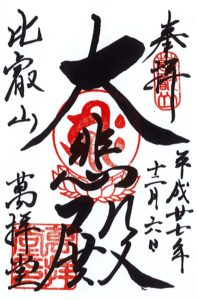 奉拝
平成廿七年
十二月六日
大悲殿
比叡山
萬拝堂